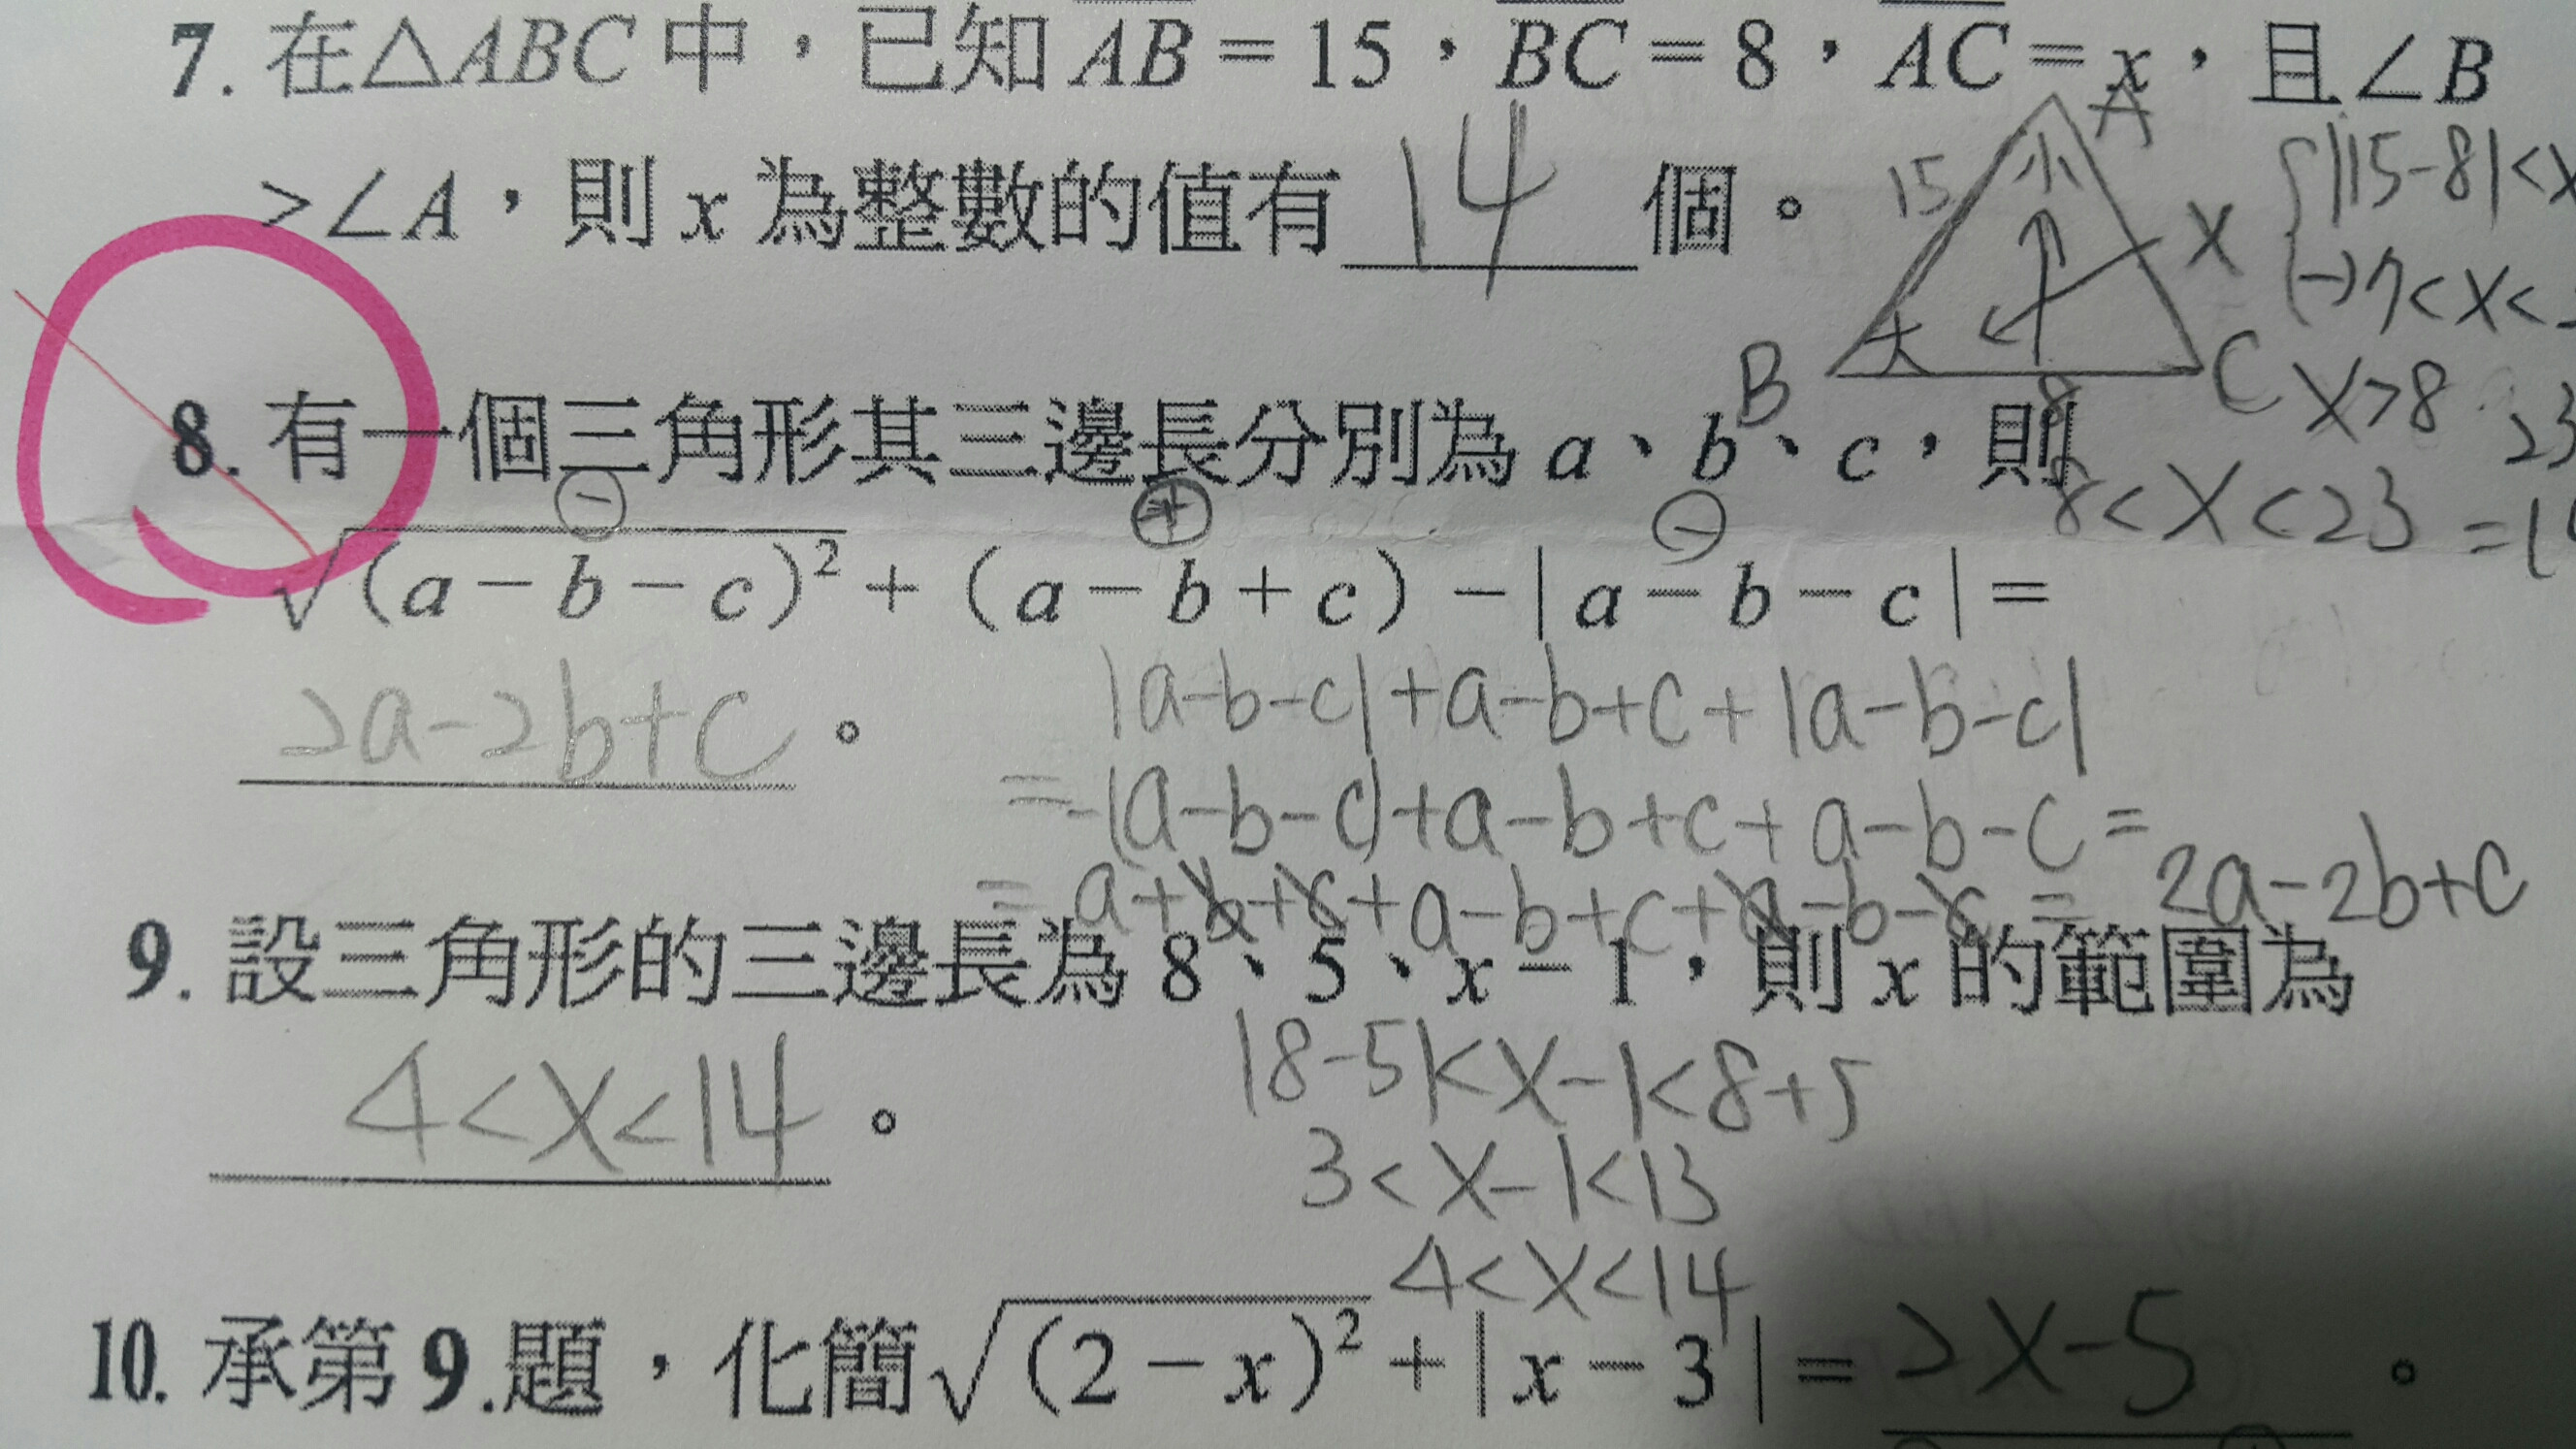 7. 在△ABC中,已知AB=15,BC=8,AC=x,且∠B
>∠A,則x為整數的值有 14 個。
A
小
15
X
大
B
8
C
|15-8|<X
7<X<
X>8
23
8<X<23
8. 有一個三角形其三邊長分別為a、b、c,則
⊖ ⊕ ⊖
√(a-b-c)²+(a-b+c)-|a-b-c|=
2a-2b+c。
|a-b-c|+a-b+c+|a-b-c|
=-(a-b-c)+a-b+c+a-b-c=
=a+b+c+a-b+c+a-b-c=2a-2b+c
9. 設三角形的三邊長為8、5、x-1,則x的範圍為
4<X<14。
|8-5|<X-1<8+5
3<X-1<13
4<X<14
10. 承第9.題,化簡√(2-x)²+|x-3|=2X-5。